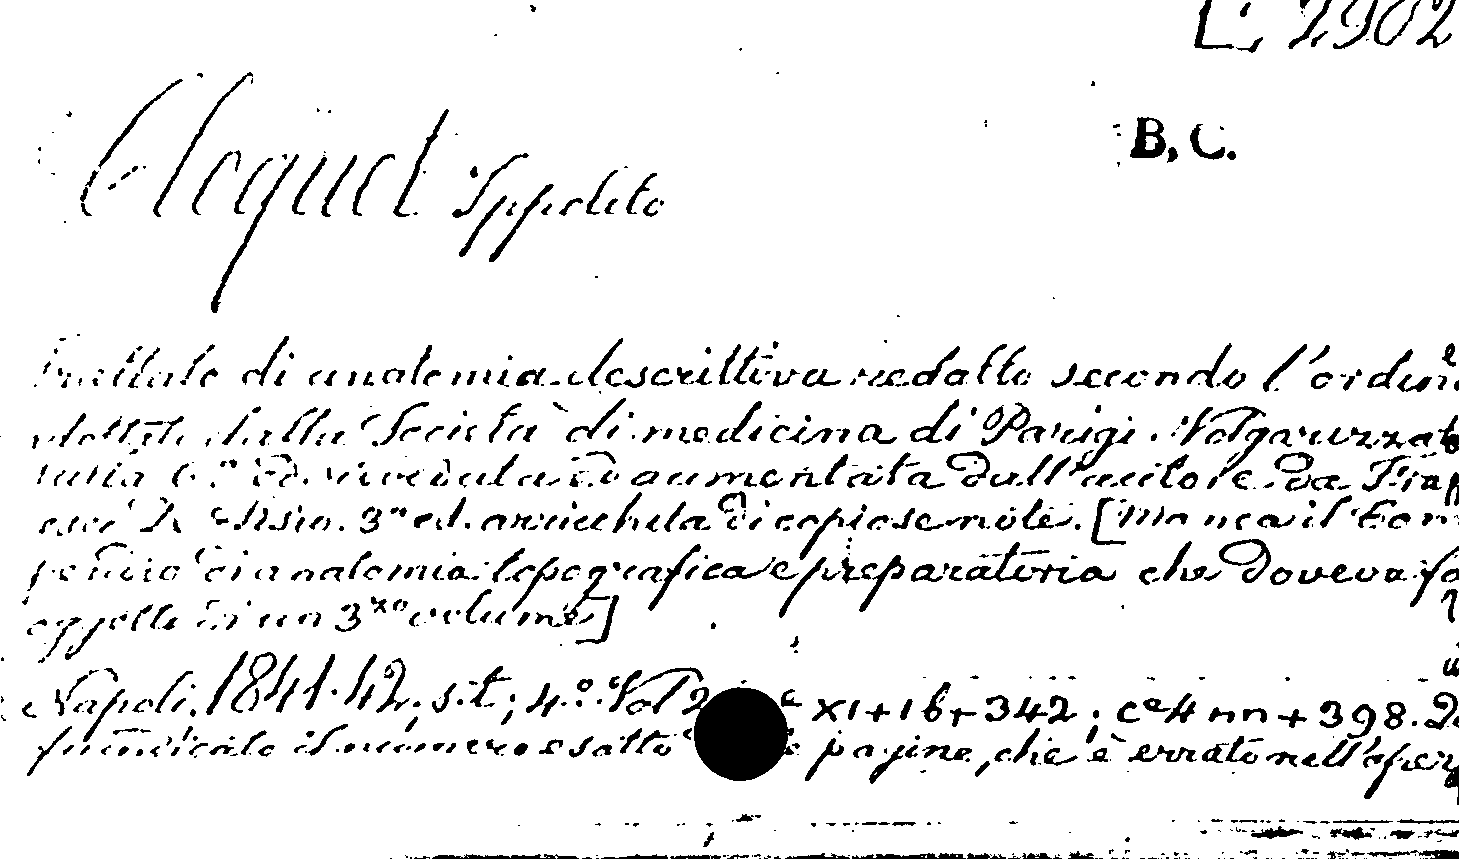 L. 2902
B. C.
Cloquet Ippolito
Trattato di anatomia descrittiva redatto secondo l'ordine
adottato dalla Società di medicina di Parigi. Volgarizzato
sulla 6.ª Ed. riveduta ed aumentata dall'autore da
3ª ed. arricchita di copiose note. [Manca il Com
pendio di anatomia topografica e preparatoria che doveva fa
oggetto di un 3zo volume]
Napoli, 1841-42, s.t.; 4.º Vol 2 XI+16+342; e 4 nn + 398.
fu indicato il numero esatto pagine, che è errato nell'